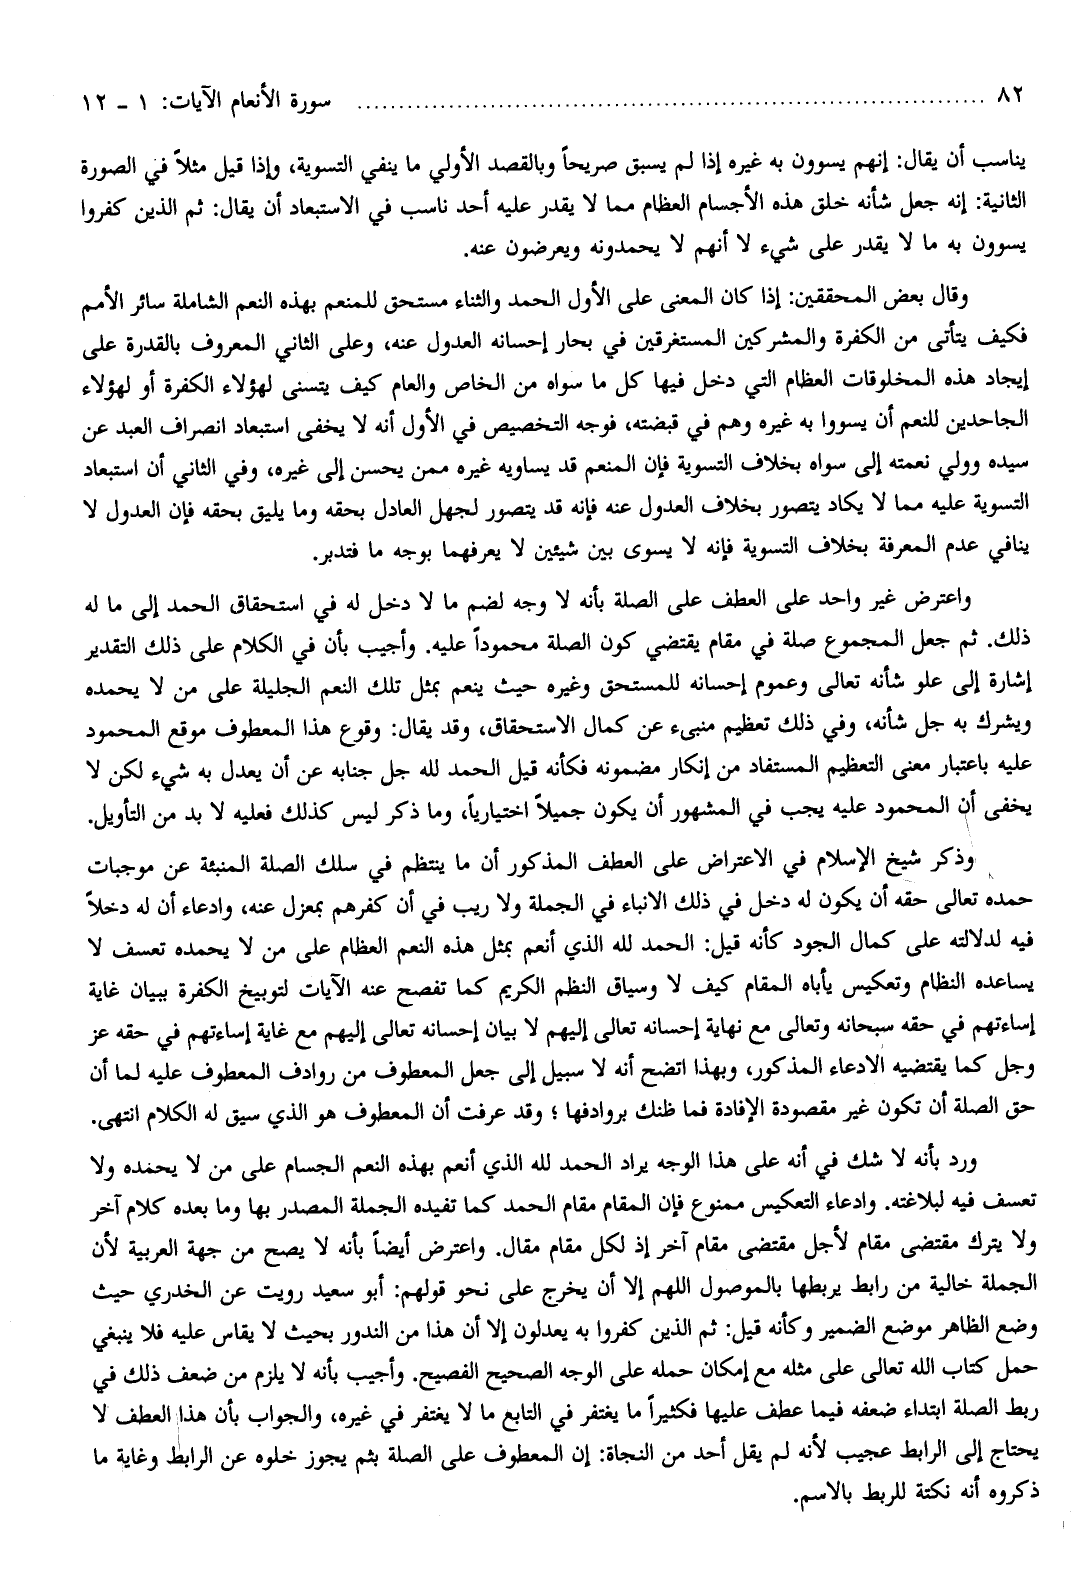 ٨٢ ........................................................ سورة الأنعام الآيات: ١ ـ ١٢
يناسب أن يقال: إنهم يسوون به غيره إذا لم يسبق صريحاً وبالقصد الأولي ما ينفي التسوية، وإذا قيل مثلاً في الصورة
الثانية: إنه جعل شأنه خلق هذه الأجسام العظام مما لا يقدر عليه أحد ناسب في الاستبعاد أن يقال: ثم الذين كفروا
يسوون به ما لا يقدر على شيء لا أنهم لا يحمدونه ويعرضون عنه.
وقال بعض المحققين: إذا كان المعنى على الأول الحمد والثناء مستحق للمنعم بهذه النعم الشاملة سائر الأمم
فكيف يتأتى من الكفرة والمشركين المستغرقين في بحار إحسانه العدول عنه، وعلى الثاني المعروف بالقدرة على
إيجاد هذه المخلوقات العظام التي دخل فيها كل ما سواه من الخاص والعام كيف يتسنى لهؤلاء الكفرة أو لهؤلاء
الجاحدين للنعم أن يسووا به غيره وهم في قبضته، فوجه التخصيص في الأول أنه لا يخفى استبعاد انصراف العبد عن
سيده وولي نعمته إلى سواه بخلاف التسوية فإن المنعم قد يساويه غيره ممن يحسن إلى غيره، وفي الثاني أن استبعاد
التسوية عليه مما لا يكاد يتصور بخلاف العدول عنه فإنه قد يتصور لجهل العادل بحقه وما يليق بحقه فإن العدول لا
ينافي عدم المعرفة بخلاف التسوية فإنه لا يسوى بين شيئين لا يعرفهما بوجه ما فتدبر.
واعترض غير واحد على العطف على الصلة بأنه لا وجه لضم ما لا دخل له في استحقاق الحمد إلى ما له
ذلك. ثم جعل المجموع صلة في مقام يقتضي كون الصلة محموداً عليه. وأجيب بأن في الكلام على ذلك التقدير
إشارة إلى علو شأنه تعالى وعموم إحسانه للمستحق وغيره حيث ينعم بمثل تلك النعم الجليلة على من لا يحمده
ويشرك به جل شأنه، وفي ذلك تعظيم منبىء عن كمال الاستحقاق، وقد يقال: وقوع هذا المعطوف موقع المحمود
عليه باعتبار معنى التعظيم المستفاد من إنكار مضمونه فكأنه قيل الحمد لله جل جنابه عن أن يعدل به شيء لكن لا
يخفى أن المحمود عليه يجب في المشهور أن يكون جميلاً اختيارياً، وما ذكر ليس كذلك فعليه لا بد من التأويل.
وذكر شيخ الإسلام في الاعتراض على العطف المذكور أن ما ينتظم في سلك الصلة المنبئة عن موجبات
حمده تعالى حقه أن يكون له دخل في ذلك الانباء في الجملة ولا ريب في أن كفرهم بمعزل عنه، وادعاء أن له دخلاً
فيه لدلالته على كمال الجود كأنه قيل: الحمد لله الذي أنعم بمثل هذه النعم العظام على من لا يحمده تعسف لا
يساعده النظام وتعكيس يأباه المقام كيف لا وسياق النظم الكريم كما تفصح عنه الآيات لتوبيخ الكفرة ببيان غاية
إساءتهم في حقه سبحانه وتعالى مع نهاية إحسانه تعالى إليهم لا بيان إحسانه تعالى إليهم مع غاية إساءتهم في حقه عز
وجل كما يقتضيه الادعاء المذكور، وبهذا اتضح أنه لا سبيل إلى جعل المعطوف من روادف المعطوف عليه لما أن
حق الصلة أن تكون غير مقصودة الإفادة فما ظنك بروادفها ؛ وقد عرفت أن المعطوف هو الذي سيق له الكلام انتهى.
ورد بأنه لا شك في أنه على هذا الوجه يراد الحمد لله الذي أنعم بهذه النعم الجسام على من لا يحمده ولا
تعسف فيه لبلاغته. وادعاء التعكيس ممنوع فإن المقام مقام الحمد كما تفيده الجملة المصدر بها وما بعده كلام آخر
ولا يترك مقتضى مقام لأجل مقتضى مقام آخر إذ لكل مقام مقال. واعترض أيضاً بأنه لا يصح من جهة العربية لأن
الجملة خالية من رابط يربطها بالموصول اللهم إلا أن يخرج على نحو قولهم: أبو سعيد رويت عن الخدري حيث
وضع الظاهر موضع الضمير وكأنه قيل: ثم الذين كفروا به يعدلون إلا أن هذا من الندور بحيث لا يقاس عليه فلا ينبغي
حمل كتاب الله تعالى على مثله مع إمكان حمله على الوجه الصحيح الفصيح. وأجيب بأنه لا يلزم من ضعف ذلك في
ربط الصلة ابتداء ضعفه فيما عطف عليها فكثيراً ما يغتفر في التابع ما لا يغتفر في غيره، والجواب بأن هذا العطف لا
يحتاج إلى الرابط عجيب لأنه لم يقل أحد من النجاة: إن المعطوف على الصلة بثم يجوز خلوه عن الرابط وغاية ما
ذكروه أنه نكتة للربط بالاسم.